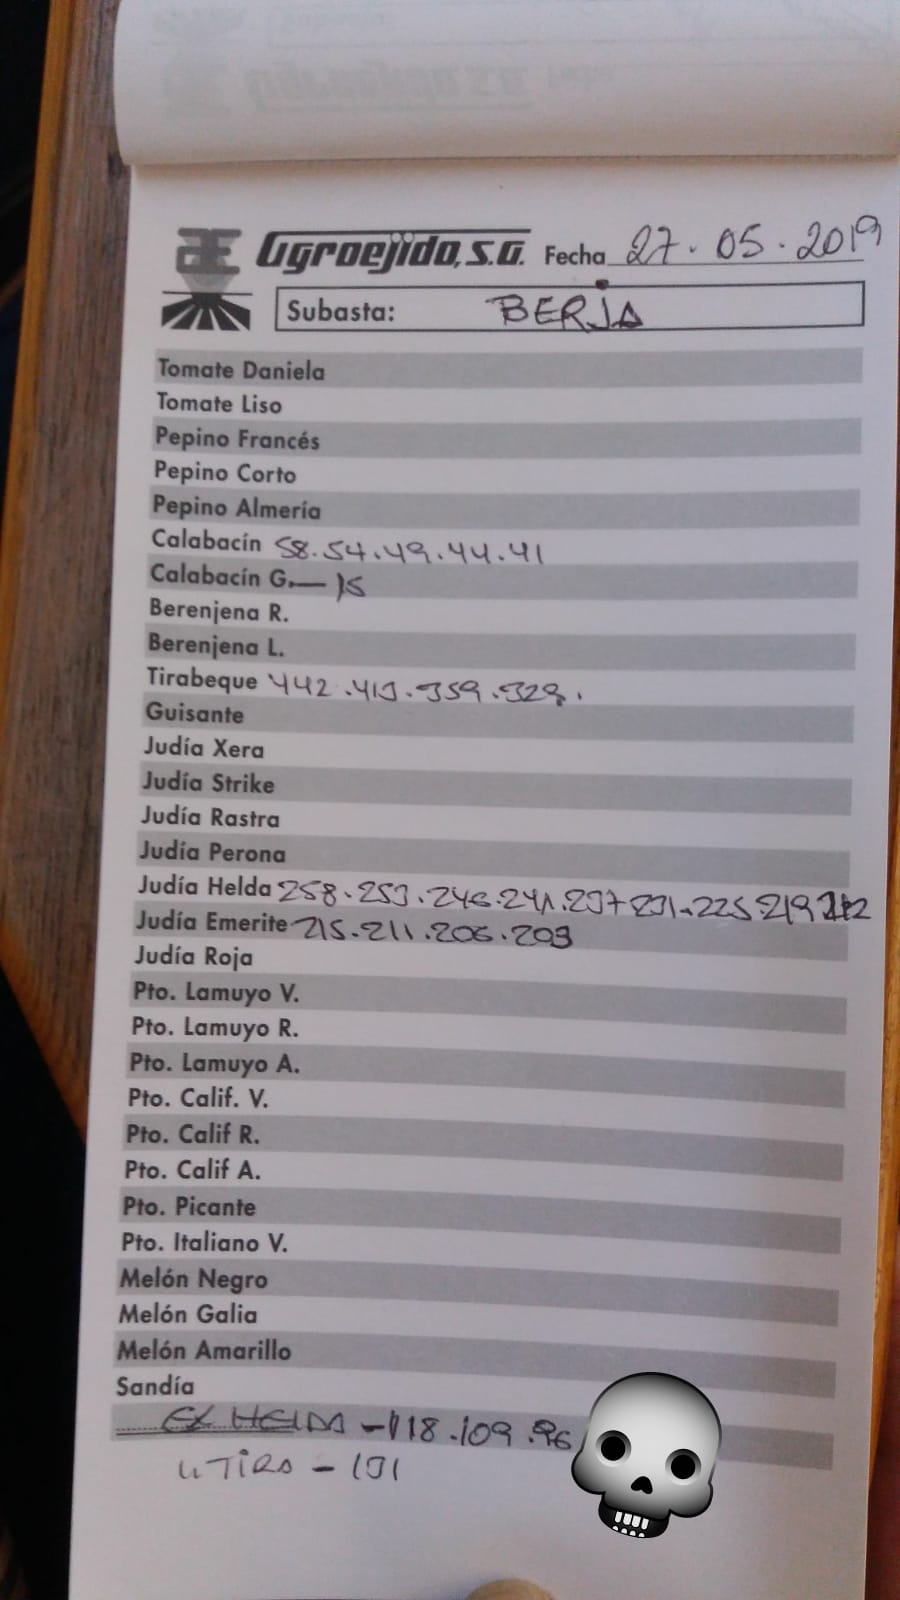 Agroejido, S.A. Fecha 27.05.2019
Subasta: BERJA
Tomate Daniela
Tomate Liso
Pepino Francés
Pepino Corto
Pepino Almería
Calabacín 58.54.49.44.41
Calabacín G.— 15
Berenjena R.
Berenjena L.
Tirabeque 442.413.359.328.
Guisante
Judía Xera
Judía Strike
Judía Rastra
Judía Perona
Judía Helda 258.253.246.241.237 231.225.219 212
Judía Emerite 215.211.206.203
Judía Roja
Pto. Lamuyo V.
Pto. Lamuyo R.
Pto. Lamuyo A.
Pto. Calif. V.
Pto. Calif R.
Pto. Calif A.
Pto. Picante
Pto. Italiano V.
Melón Negro
Melón Galia
Melón Amarillo
Sandía
HELDA - 118.109.96
TIRA - 131